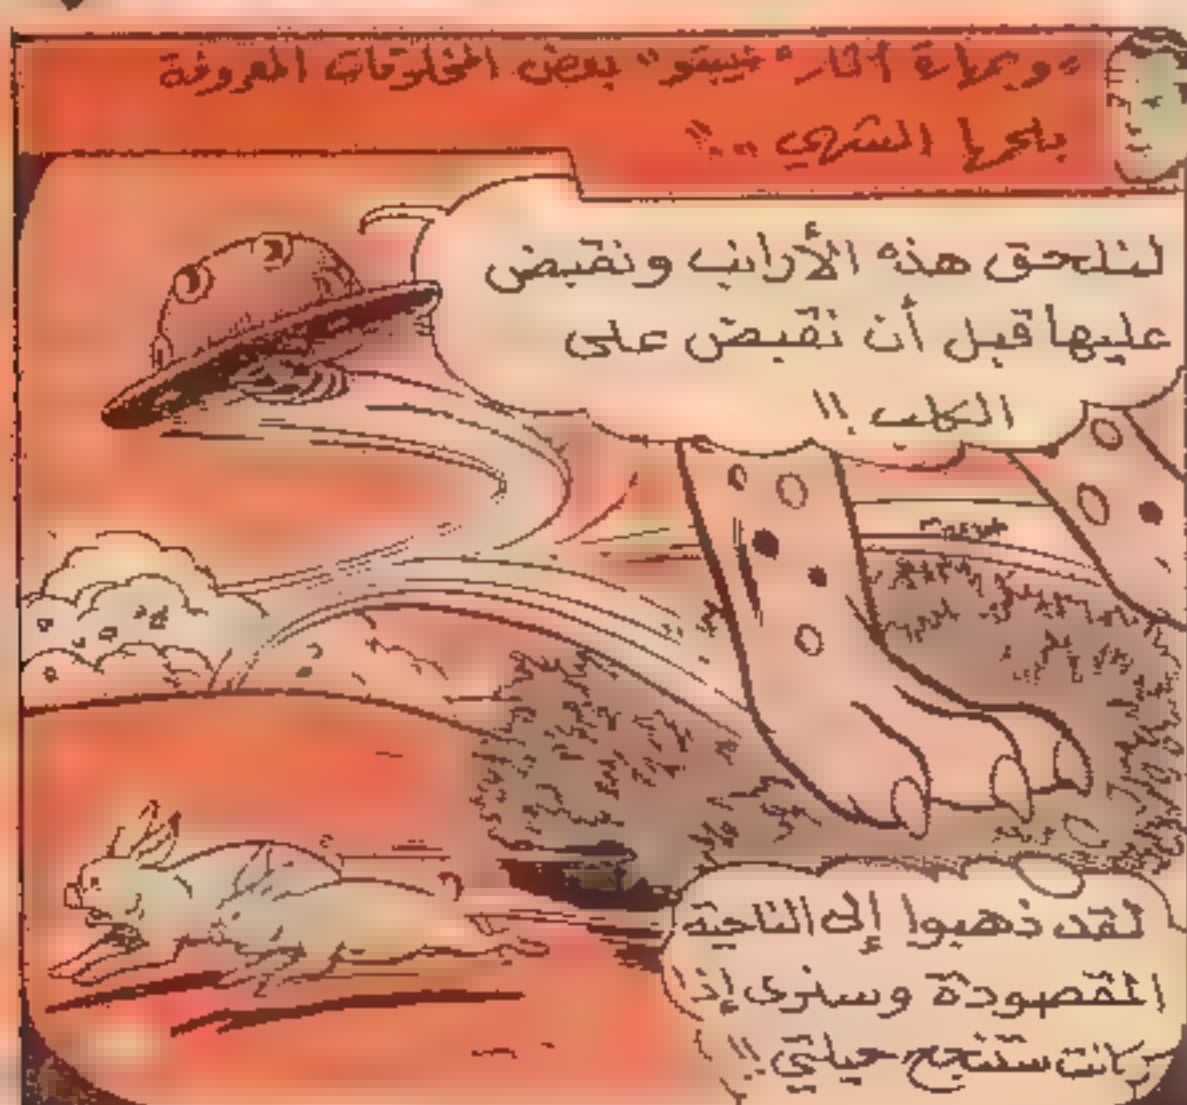 "وبمهارة أثار "فيبتو" بعض المخلوقات المعروفة
بلحمها الشهي .."
لنلحق هذه الأرانب ونقبض
عليها قبل أن نقبض على
الكلب !!
لقد ذهبوا إلى الناحية
المقصودة وسنرى إذا
كانت ستنجح حيلتي !!